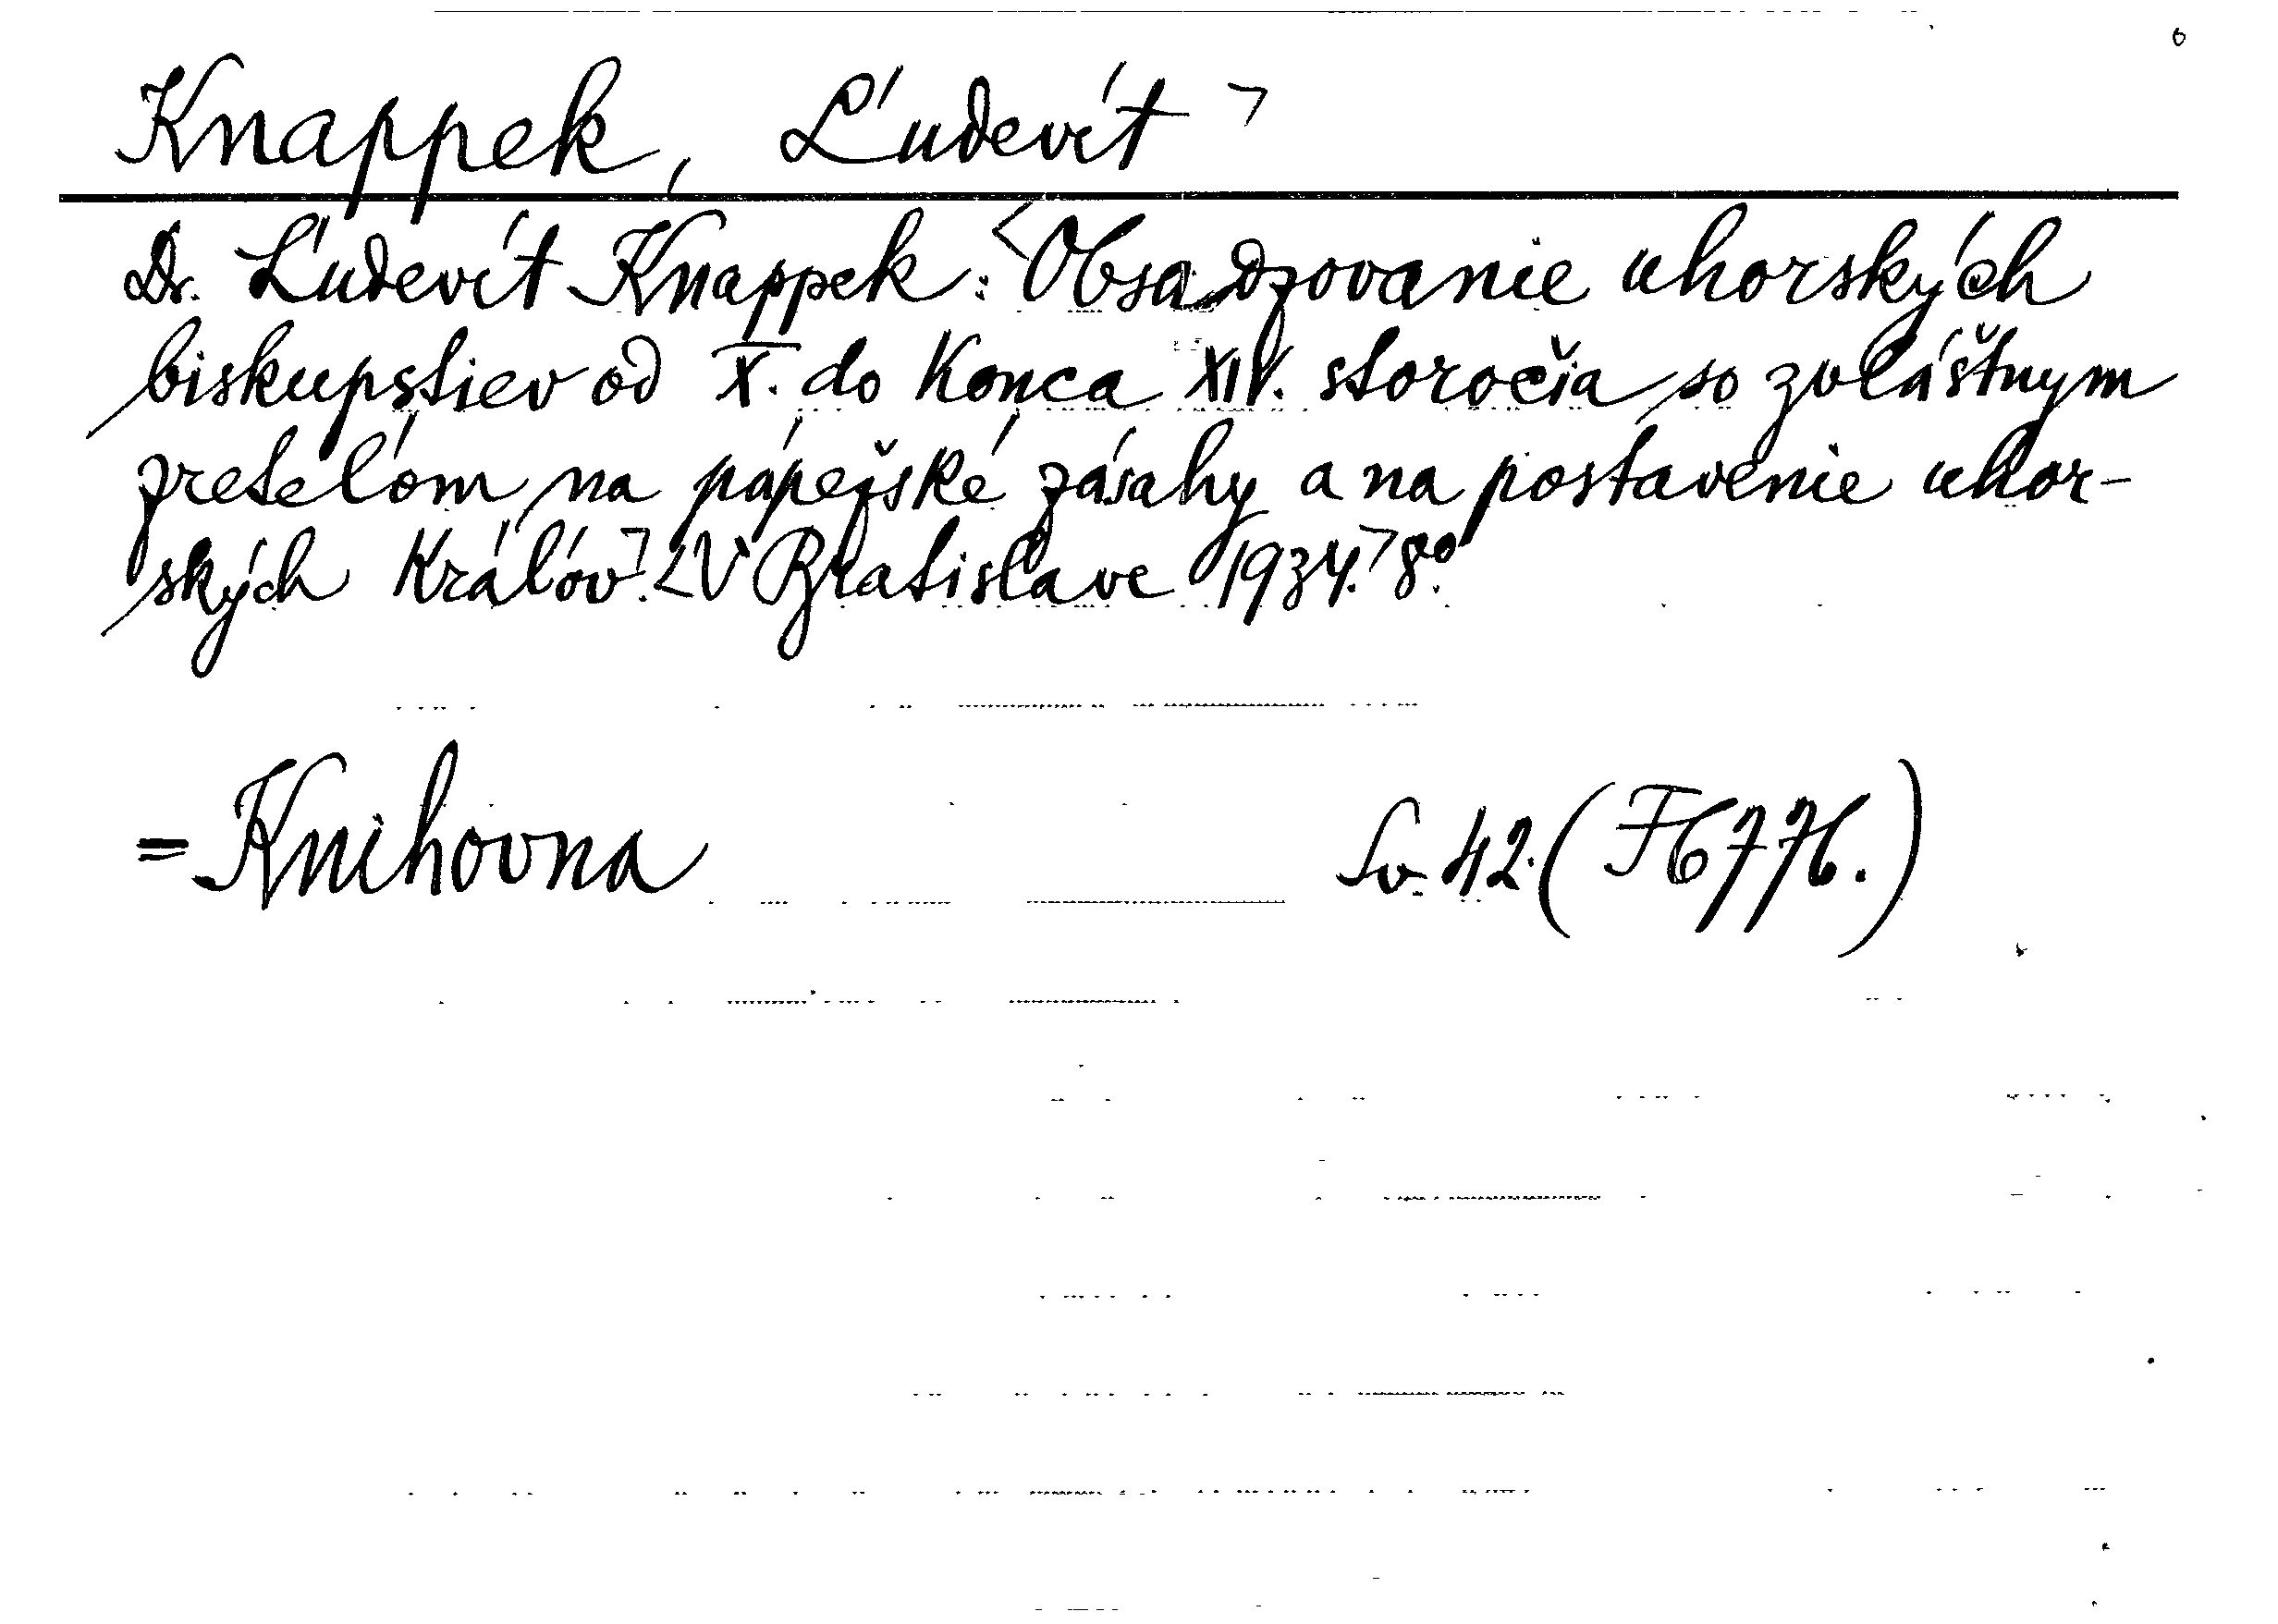 Knappek, Ľudevít ⌝
Dr. Ľudevít Knappek: <Obsadzovanie uhorských
biskupstiev od X. do konca XIV. storočia so zvláštnym
zreteľom na pápežské zásahy a na postavenie uhor-
ských kráľov⌝. <V Bratislave 1934.⌝ 8º.
= Knihovna Sv. 42. (F 6776.)